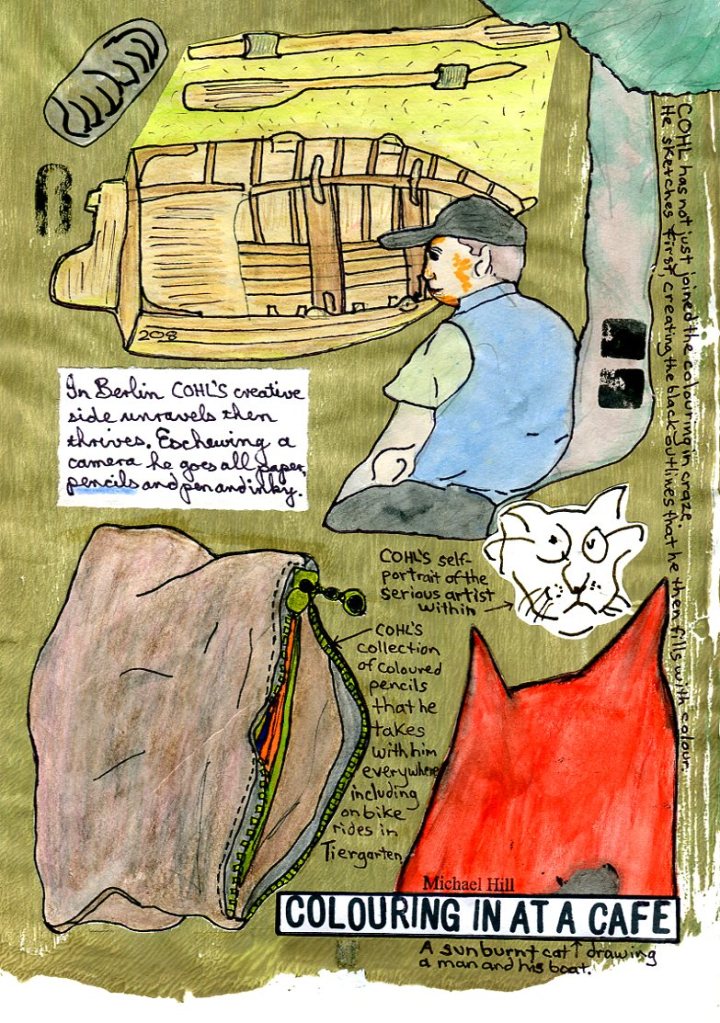 COHL has not just joined the colouring in craze.
He sketches first, creating the black outlines that he then fills with colour.
208
In Berlin COHL'S creative
side unravels then
thrives. Eschewing a
camera he goes all paper,
pencils and pen and inky.
COHL'S self-
portrait of the
serious artist
within
COHL'S
collection
of coloured
pencils
that he
takes
with him
everywhere
including
on bike
rides in
Tiergarten
Michael Hill
COLOURING IN AT A CAFE
A sunburnt cat ↑ drawing
a man and his boat.